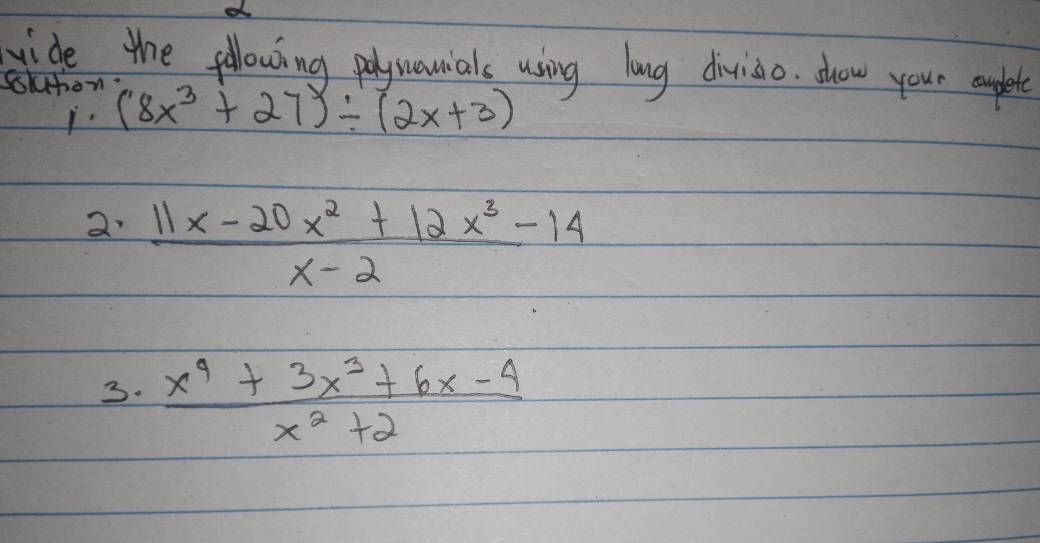 2
vide the following polynomials using long divisio. show your complete
solution.
1. (8x³ + 27) ÷ (2x+3)
2. 11x - 20x² + 12x³ - 14
x - 2
3. x⁴ + 3x³ + 6x - 4
x² + 2